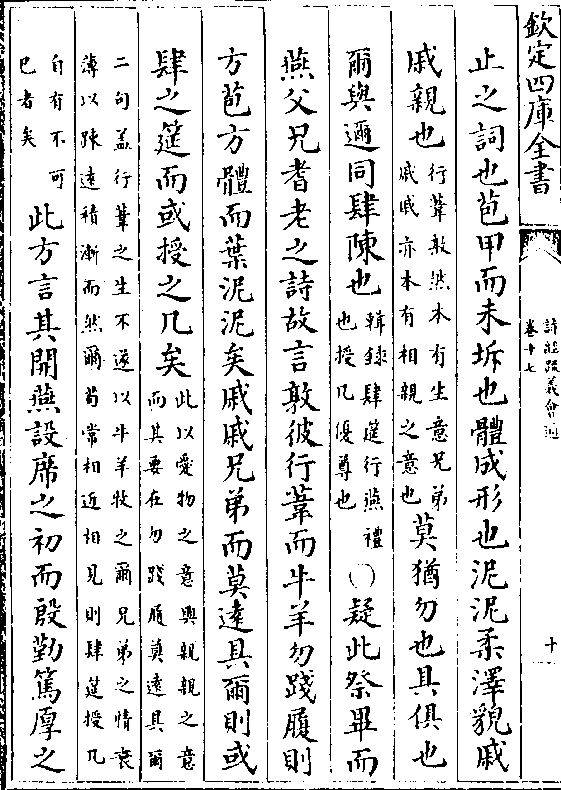 欽定四庫全書
詩經疏義會通
卷十七
十
止之詞也苞甲而未坼也體成形也泥泥柔澤貌戚
戚親也行葦敦然本有生意兄弟戚戚亦本有相親之意也莫猶勿也具俱也
爾與邇同肆陳也輯錄肆筵行燕禮也授几優尊也○疑此祭畢而
燕父兄耆老之詩故言敦彼行葦而牛羊勿踐履則
方苞方體而葉泥泥矣戚戚兄弟而莫遠具爾則或
肆之筵而或授之几矣此以愛物之意興親親之意而其要在勿踐履莫遠具爾
二句蓋行葦之生不遂以牛羊牧之爾兄弟之情衰薄以踈遠積漸而然爾苟常相近相見則肆筵授几
自有不可巳者矣此方言其開燕設席之初而殷勤篤厚之